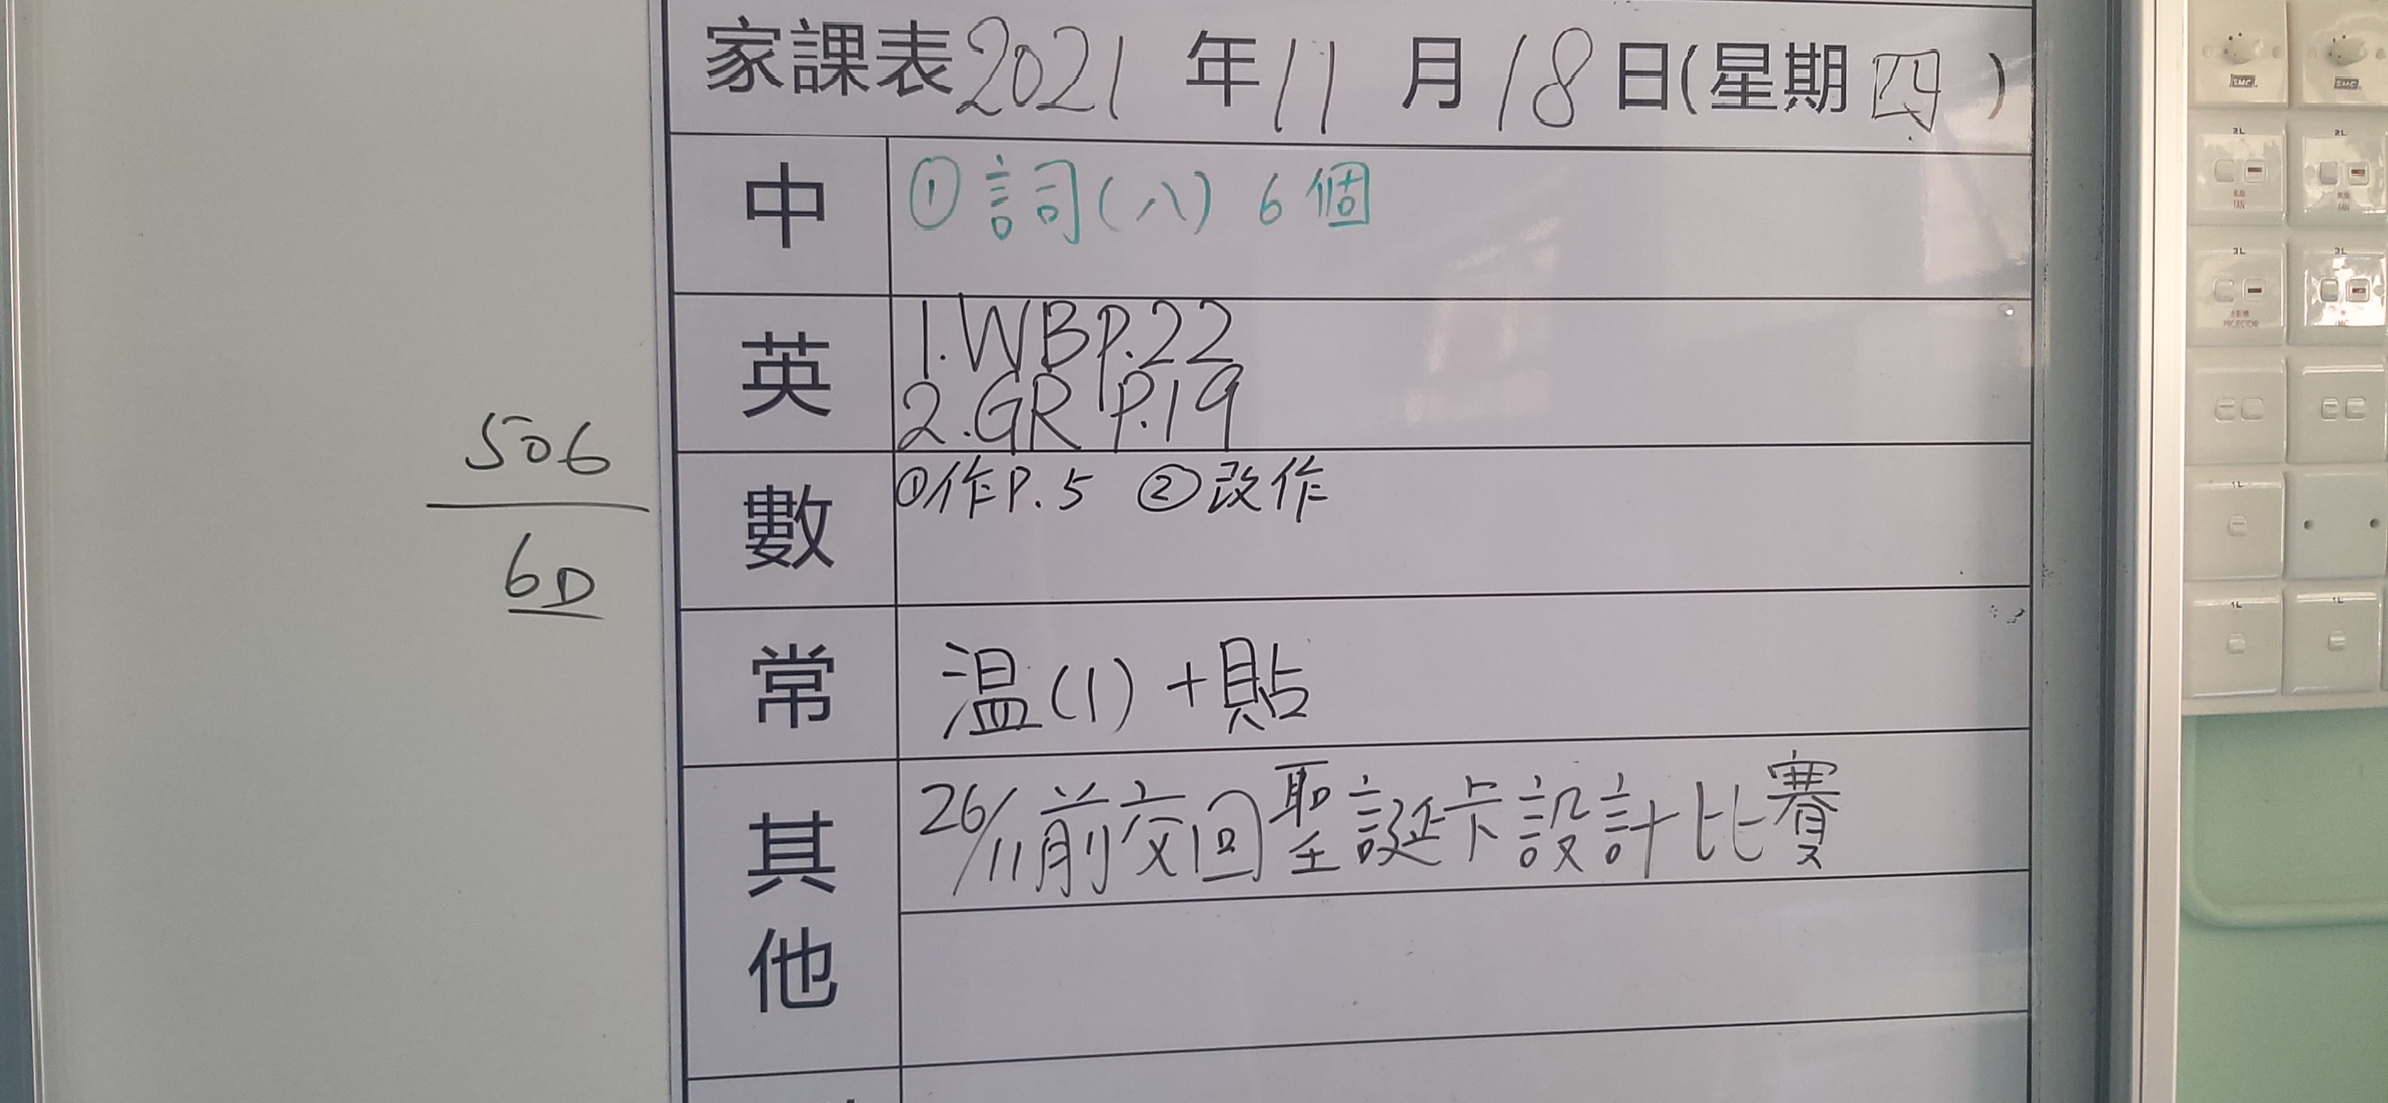 家課表 2021 年 11 月 18 日(星期四)
中 ① 詞(八) 6 個
英 1. WB P.22
2. GR P.19
數 ①作P.5 ②改作
常 温(1)+貼
其他 26/11前交回聖誕卡設計比賽
506
6D
SMC
SMC
2L
FAN
2L
FAN
3L
PROJECTOR
3L
1L
1L
1L